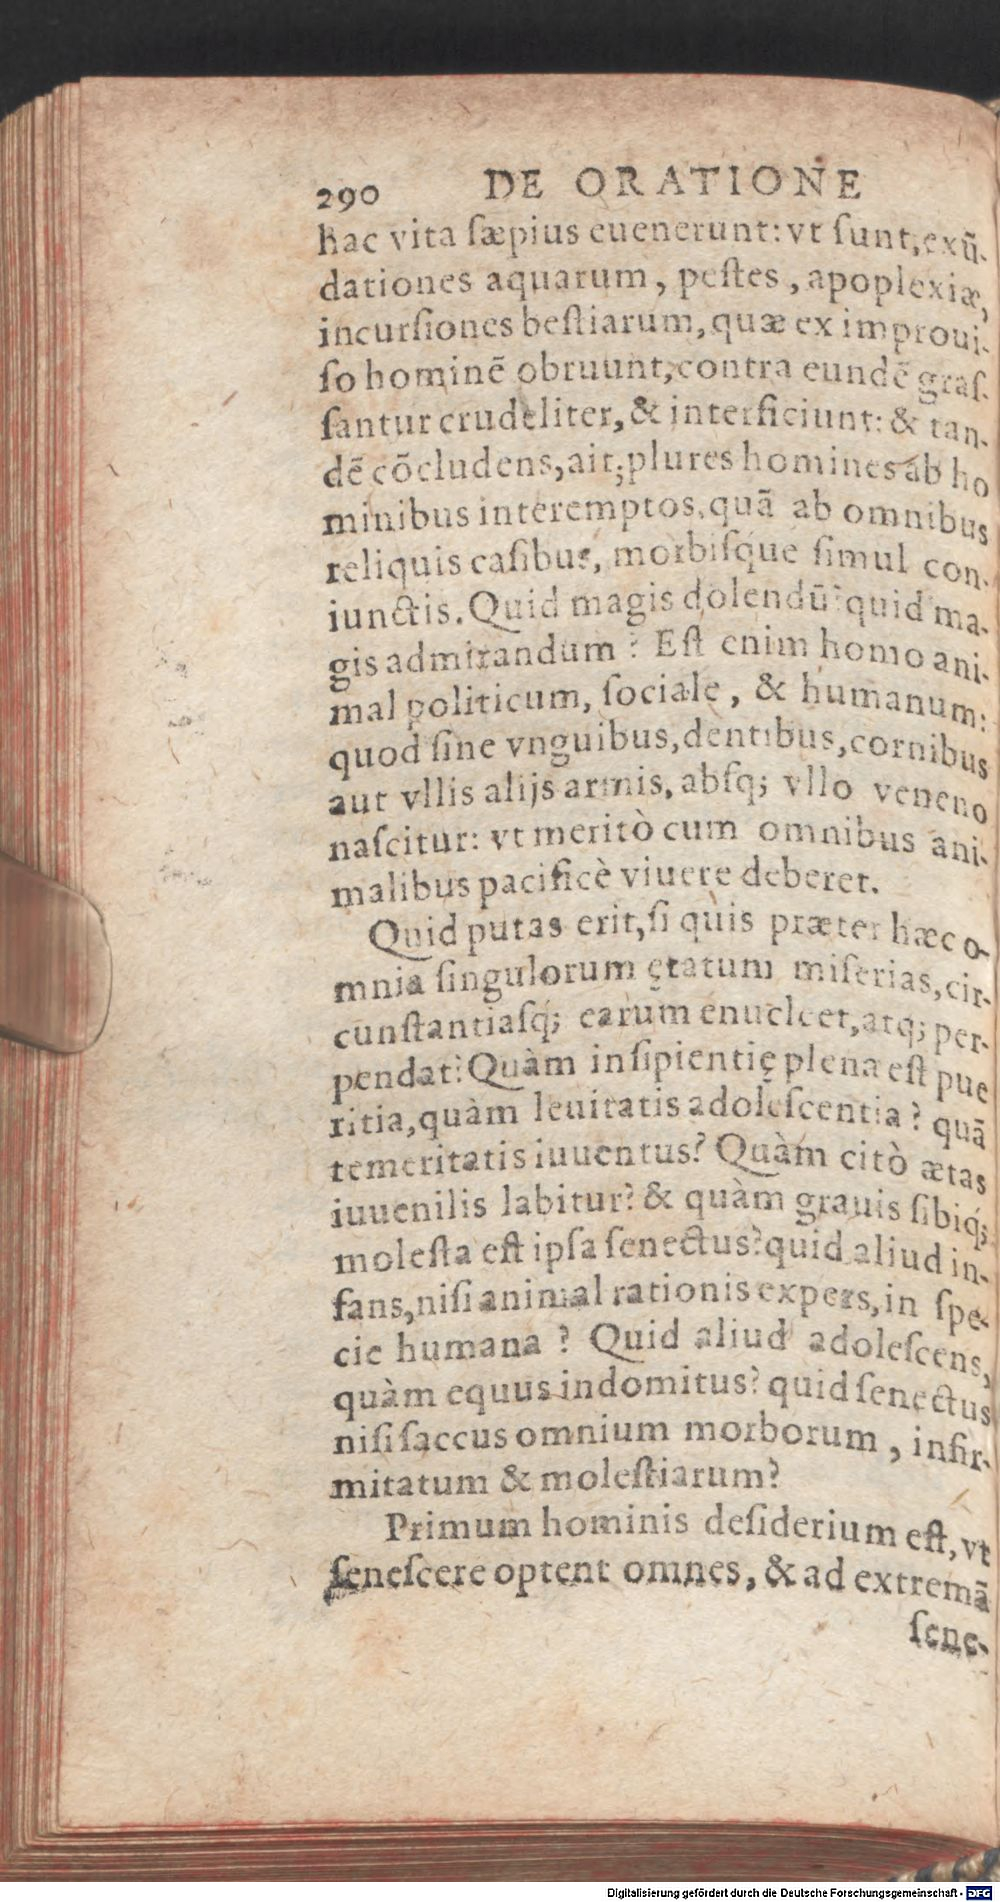 290 DE ORATIONE
hac vita ſæpius euenerunt: vt ſunt, exū-
dationes aquarum, peſtes, apoplexiæ,
incurſiones beſtiarum, quæ ex improui-
ſo hominē obruunt, contra eundē graſ-
ſantur crudeliter, & interficiunt: & tan-
dē cōcludens, ait; plures homines ab ho
minibus interemptos, quã ab omnibus
reliquis caſibus, morbiſque ſimul con-
iunctis. Quid magis dolendū? quid ma-
gis admirandum? Eſt enim homo ani-
mal politicum, ſociale, & humanum:
quod ſine vnguibus, dentibus, cornibus
aut vllis alijs armis, abſq; vllo veneno
naſcitur: vt meritò cum omnibus ani-
malibus pacificè viuere deberet.
Quid putas erit, ſi quis præter hæc o-
mnia ſingulorum ętatum miſerias, cir-
cunſtantiaſq́; earum enucleet, atq; per-
pendat? Quàm inſipientię plena eſt pue
ritia, quàm leuitatis adoleſcentia? quã
temeritatis iuuentus? Quàm citò ætas
iuuenilis labitur? & quàm grauis ſibiq́;
moleſta eſt ipſa ſenectus? quid aliud in-
fans, niſi animal rationis expers, in ſpe-
cie humana? Quid aliud adoleſcens,
quàm equus indomitus? quid ſenectus
niſi ſaccus omnium morborum, infir-
mitatum & moleſtiarum?
Primum hominis deſiderium eſt, vt
ſeneſcere optent omnes, & ad extremã
ſene-
Digitalisierung gefördert durch die Deutsche Forschungsgemeinschaft - DFG